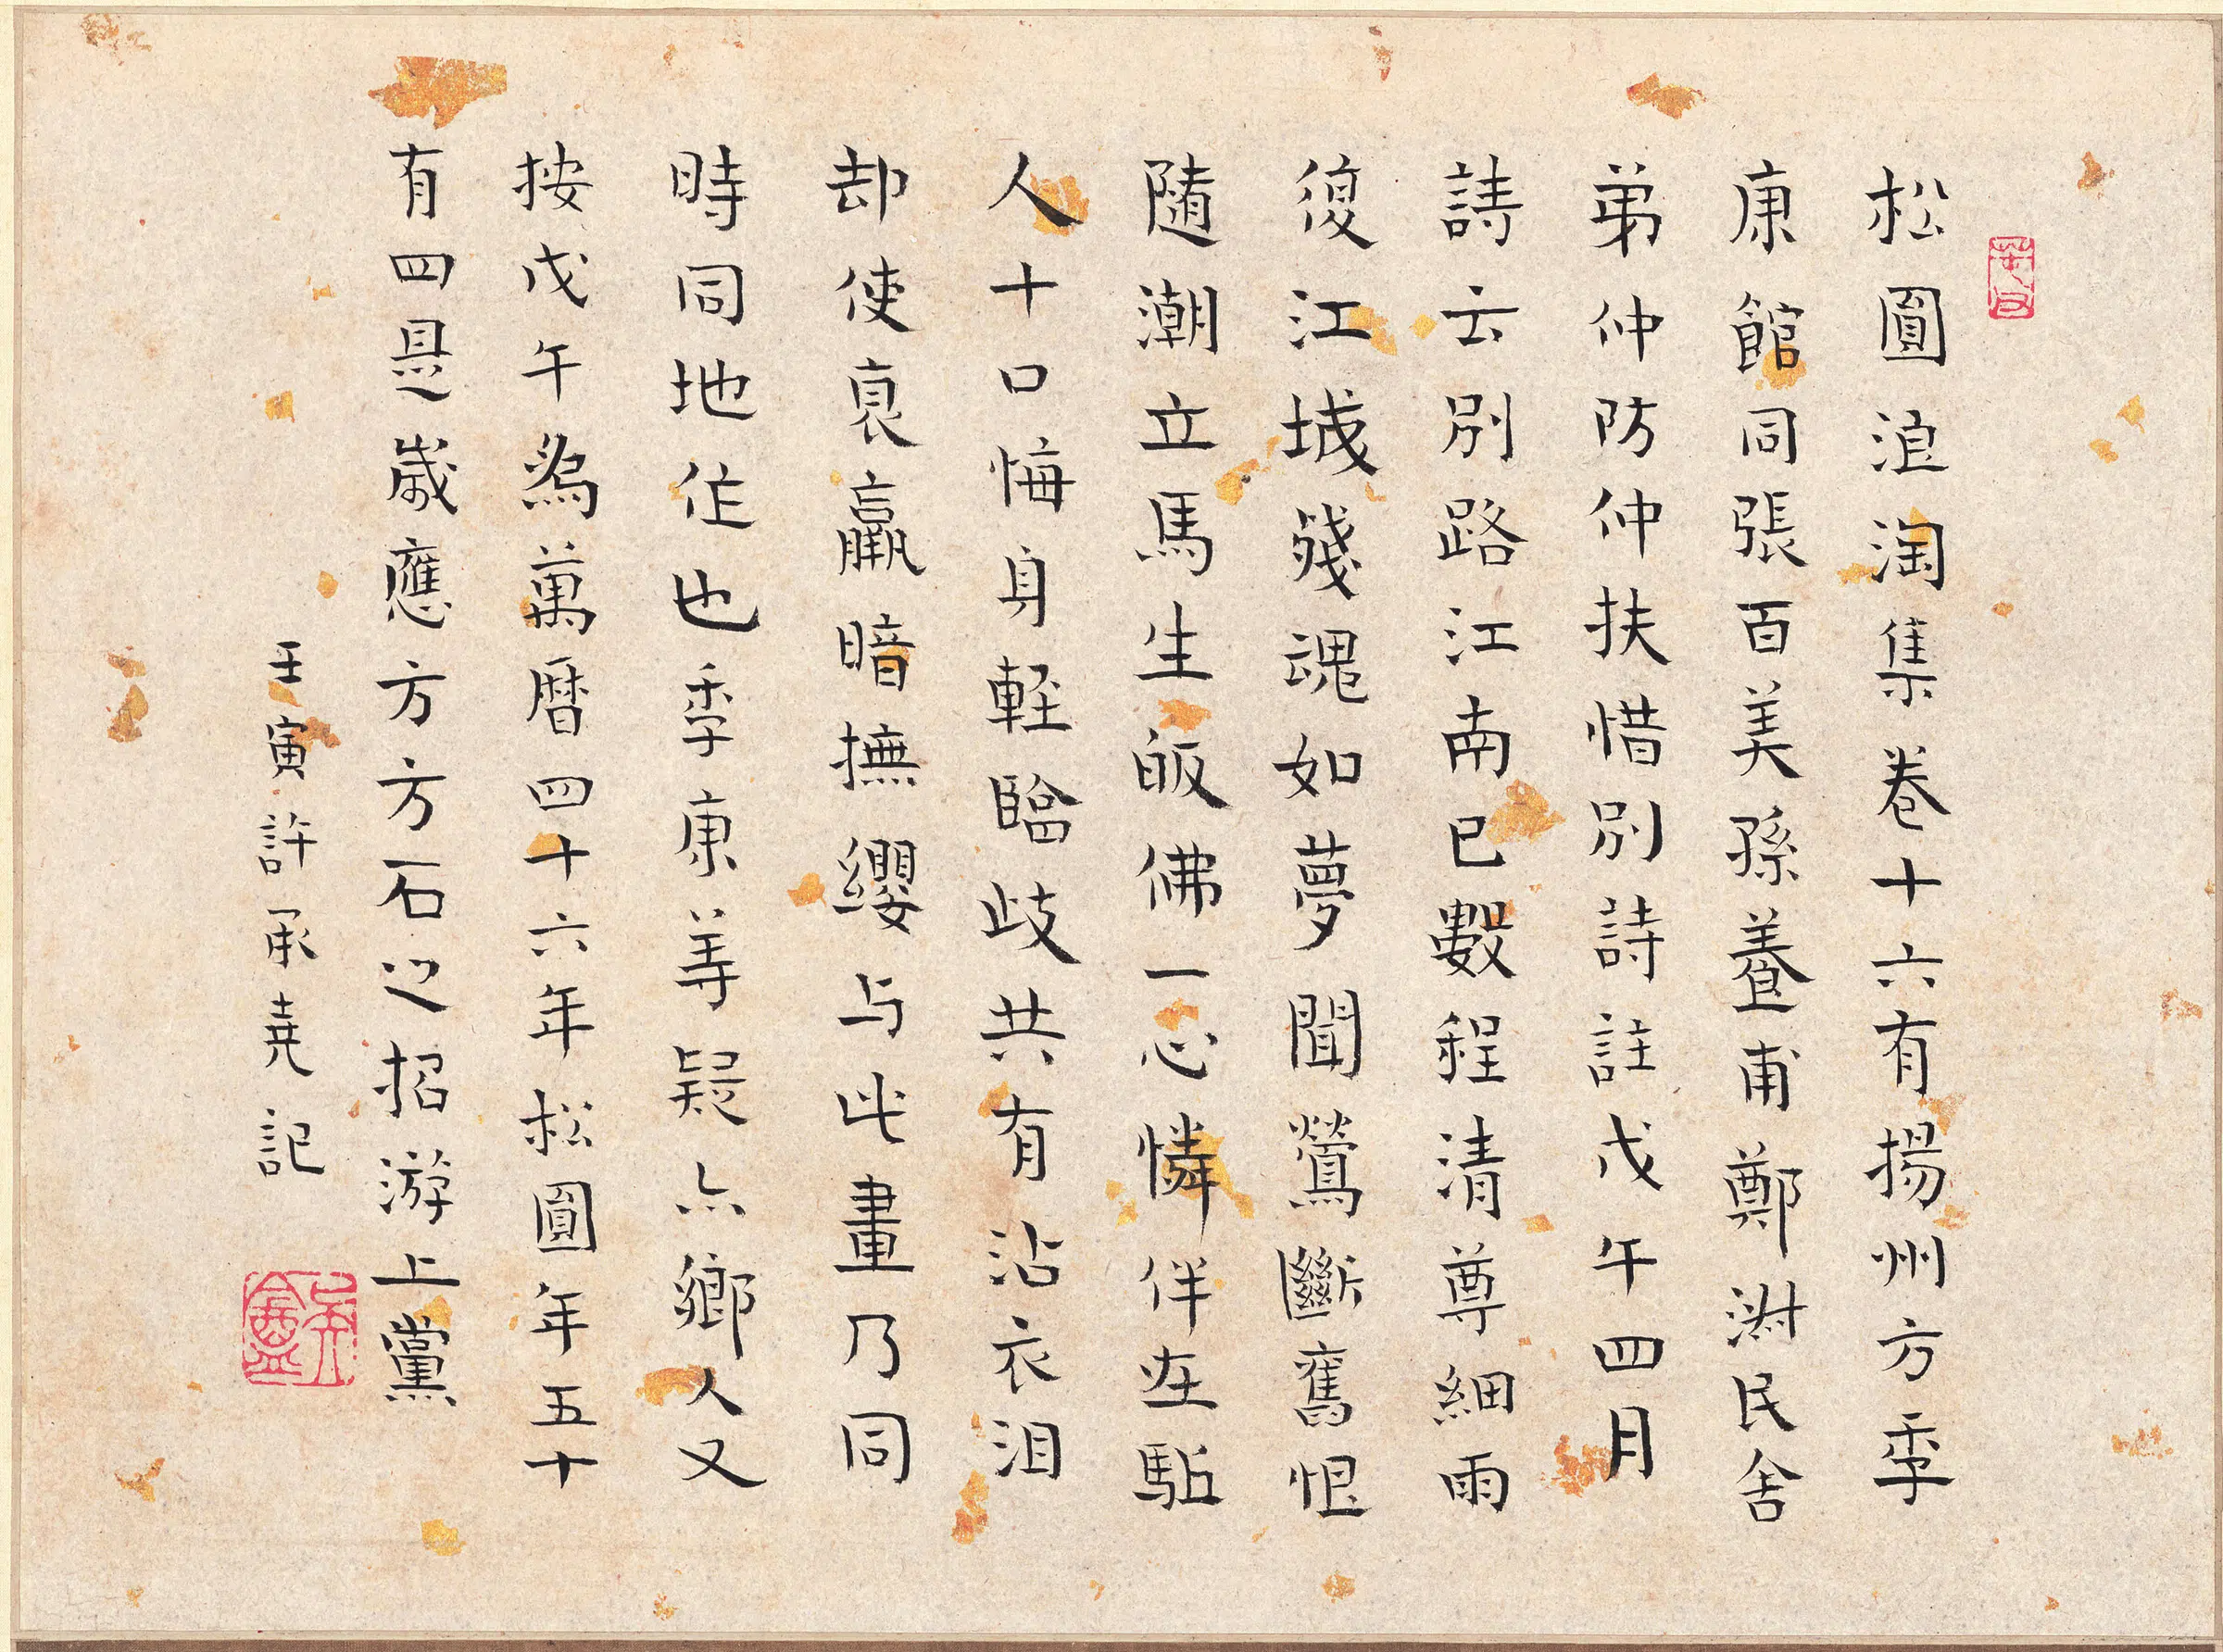 松圓浪淘集卷十六有揚州方季
康館同張百美孫養甫鄭澍民舍
弟仲防仲扶惜別詩註戊午四月
詩云別路江南已數程清尊細雨
復江城殘魂如夢聞鶯斷舊恨
隨潮立馬生皈佛一心憐伴在點
人十口悔身輕臨歧共有沾衣泪
却使哀羸暗撫纓与此畫乃同
時同地作也季康羊疑亦鄉人又
按戊午爲萬曆四十六年松圓年五十
有四是歲應方方石之招游上黨
壬寅許承堯記